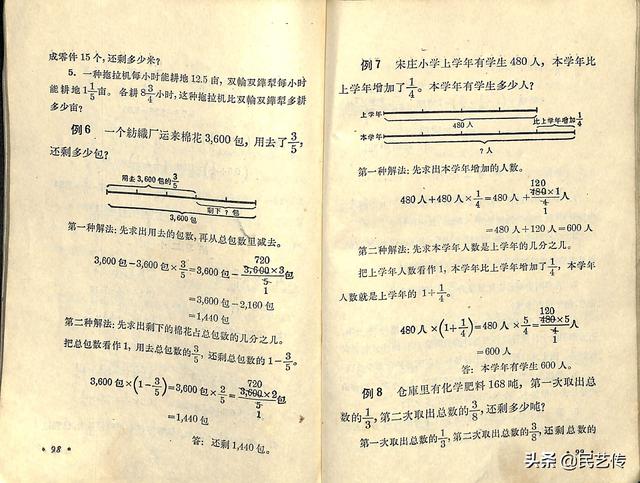 成零件 15 个，还剩多少米？
5. 一种拖拉机每小时能耕地 12.5 亩，双輪双鏵犁每小时
能耕地 1 1/5 亩。各耕 8 3/4 小时，这种拖拉机比双輪双鏵犁多耕
多少亩？
例 6 一个紡織厂运来棉花 3,600 包，用去了 3/5，
还剩多少包？
用去 3,600 包的 3/5
剩下 ? 包
3,600 包
第一种解法：先求出用去的包数，再从总包数里减去。
3,600 包－3,600 包×3/5＝3,600 包－720 3,600×3/5 1 包
＝3,600 包－2,160 包
＝1,440 包
第二种解法：先求出剩下的棉花占总包数的几分之几。
把总包数看作 1，用去总包数的 3/5，还剩总包数的 1－3/5。
3,600 包×(1－3/5)＝3,600 包×2/5＝720 3,600×2/5 1 包
＝1,440 包
答：还剩 1,440 包。
• 98 •
例 7 宋庄小学上学年有学生 480 人，本学年比
上学年增加了 1/4。本学年有学生多少人？
上学年
480 人
比上学年增加 1/4
本学年
? 人
第一种解法：先求出本学年增加的人数。
480 人＋480 人×1/4＝480 人＋120 480×1/4 1 人
＝480 人＋120 人＝600 人
第二种解法：先求本学年人数是上学年的几分之几。
把上学年人数看作 1，本学年比上学年增加了 1/4，本学年
人数就是上学年的 1＋1/4。
480 人×(1＋1/4)＝480 人×5/4＝120 480×5/4 1 人
＝600 人
答：本学年有学生 600 人。
例 8 仓庫里有化学肥料 168 吨，第一次取出总
数的 1/3，第二次取出总数的 3/8，还剩多少吨？
第一次取出总数的 1/3，第二次取出总数的 3/8，还剩总数的
99
头条 @民艺传